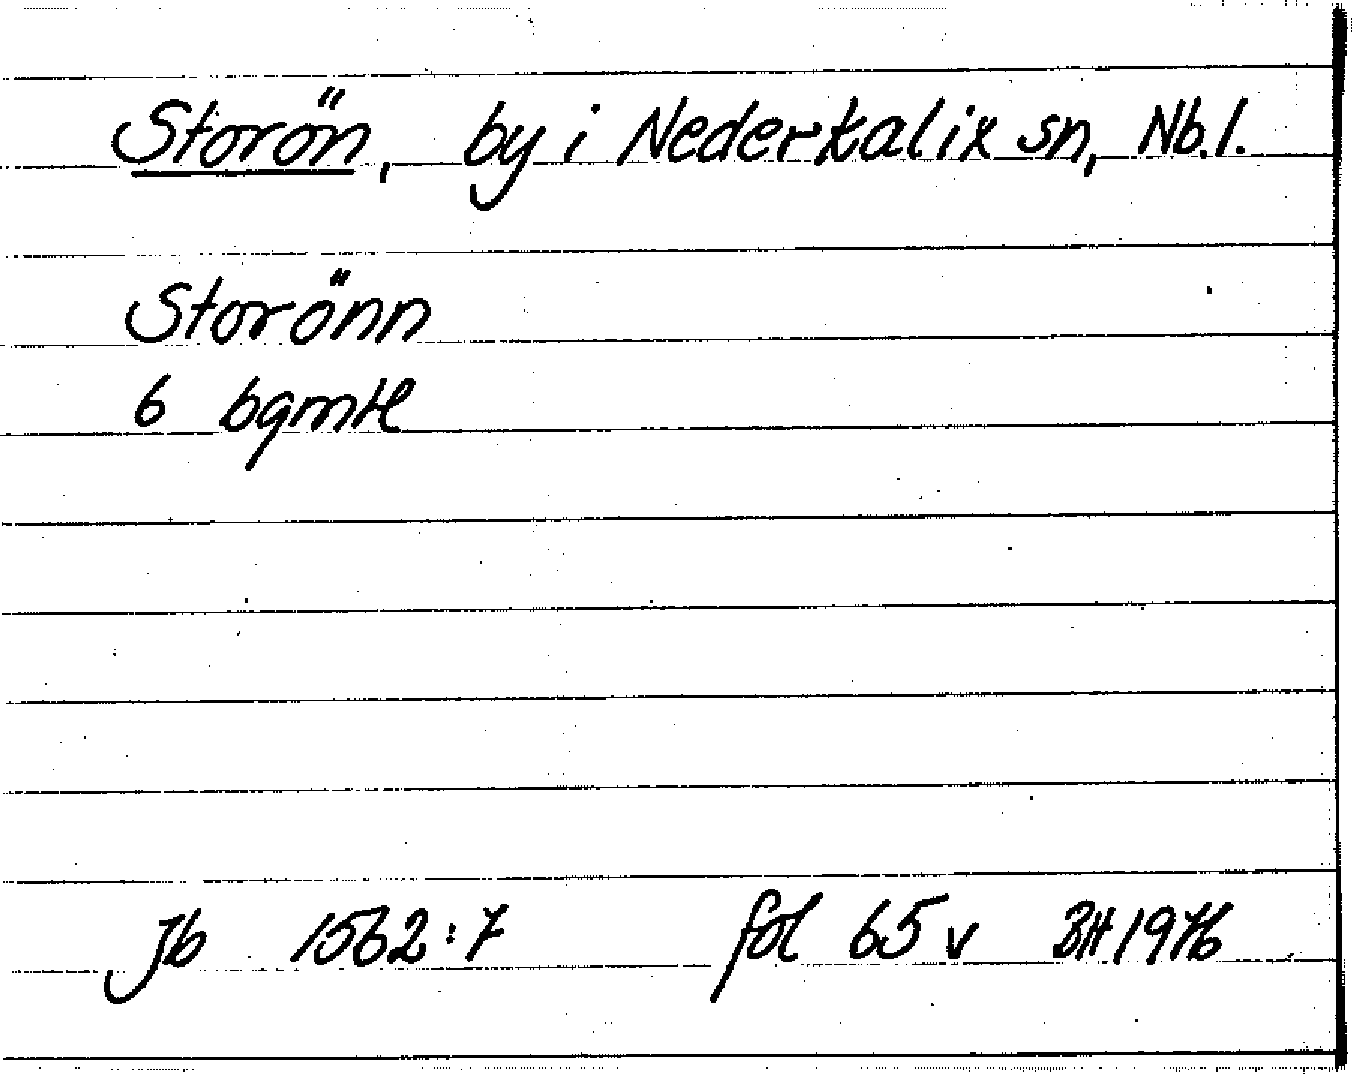 Storön, by i Nederkalix sn, Nb.l.
Storönn
6 bgmtl
Jb 1562:7 fol 65 v BH 1976